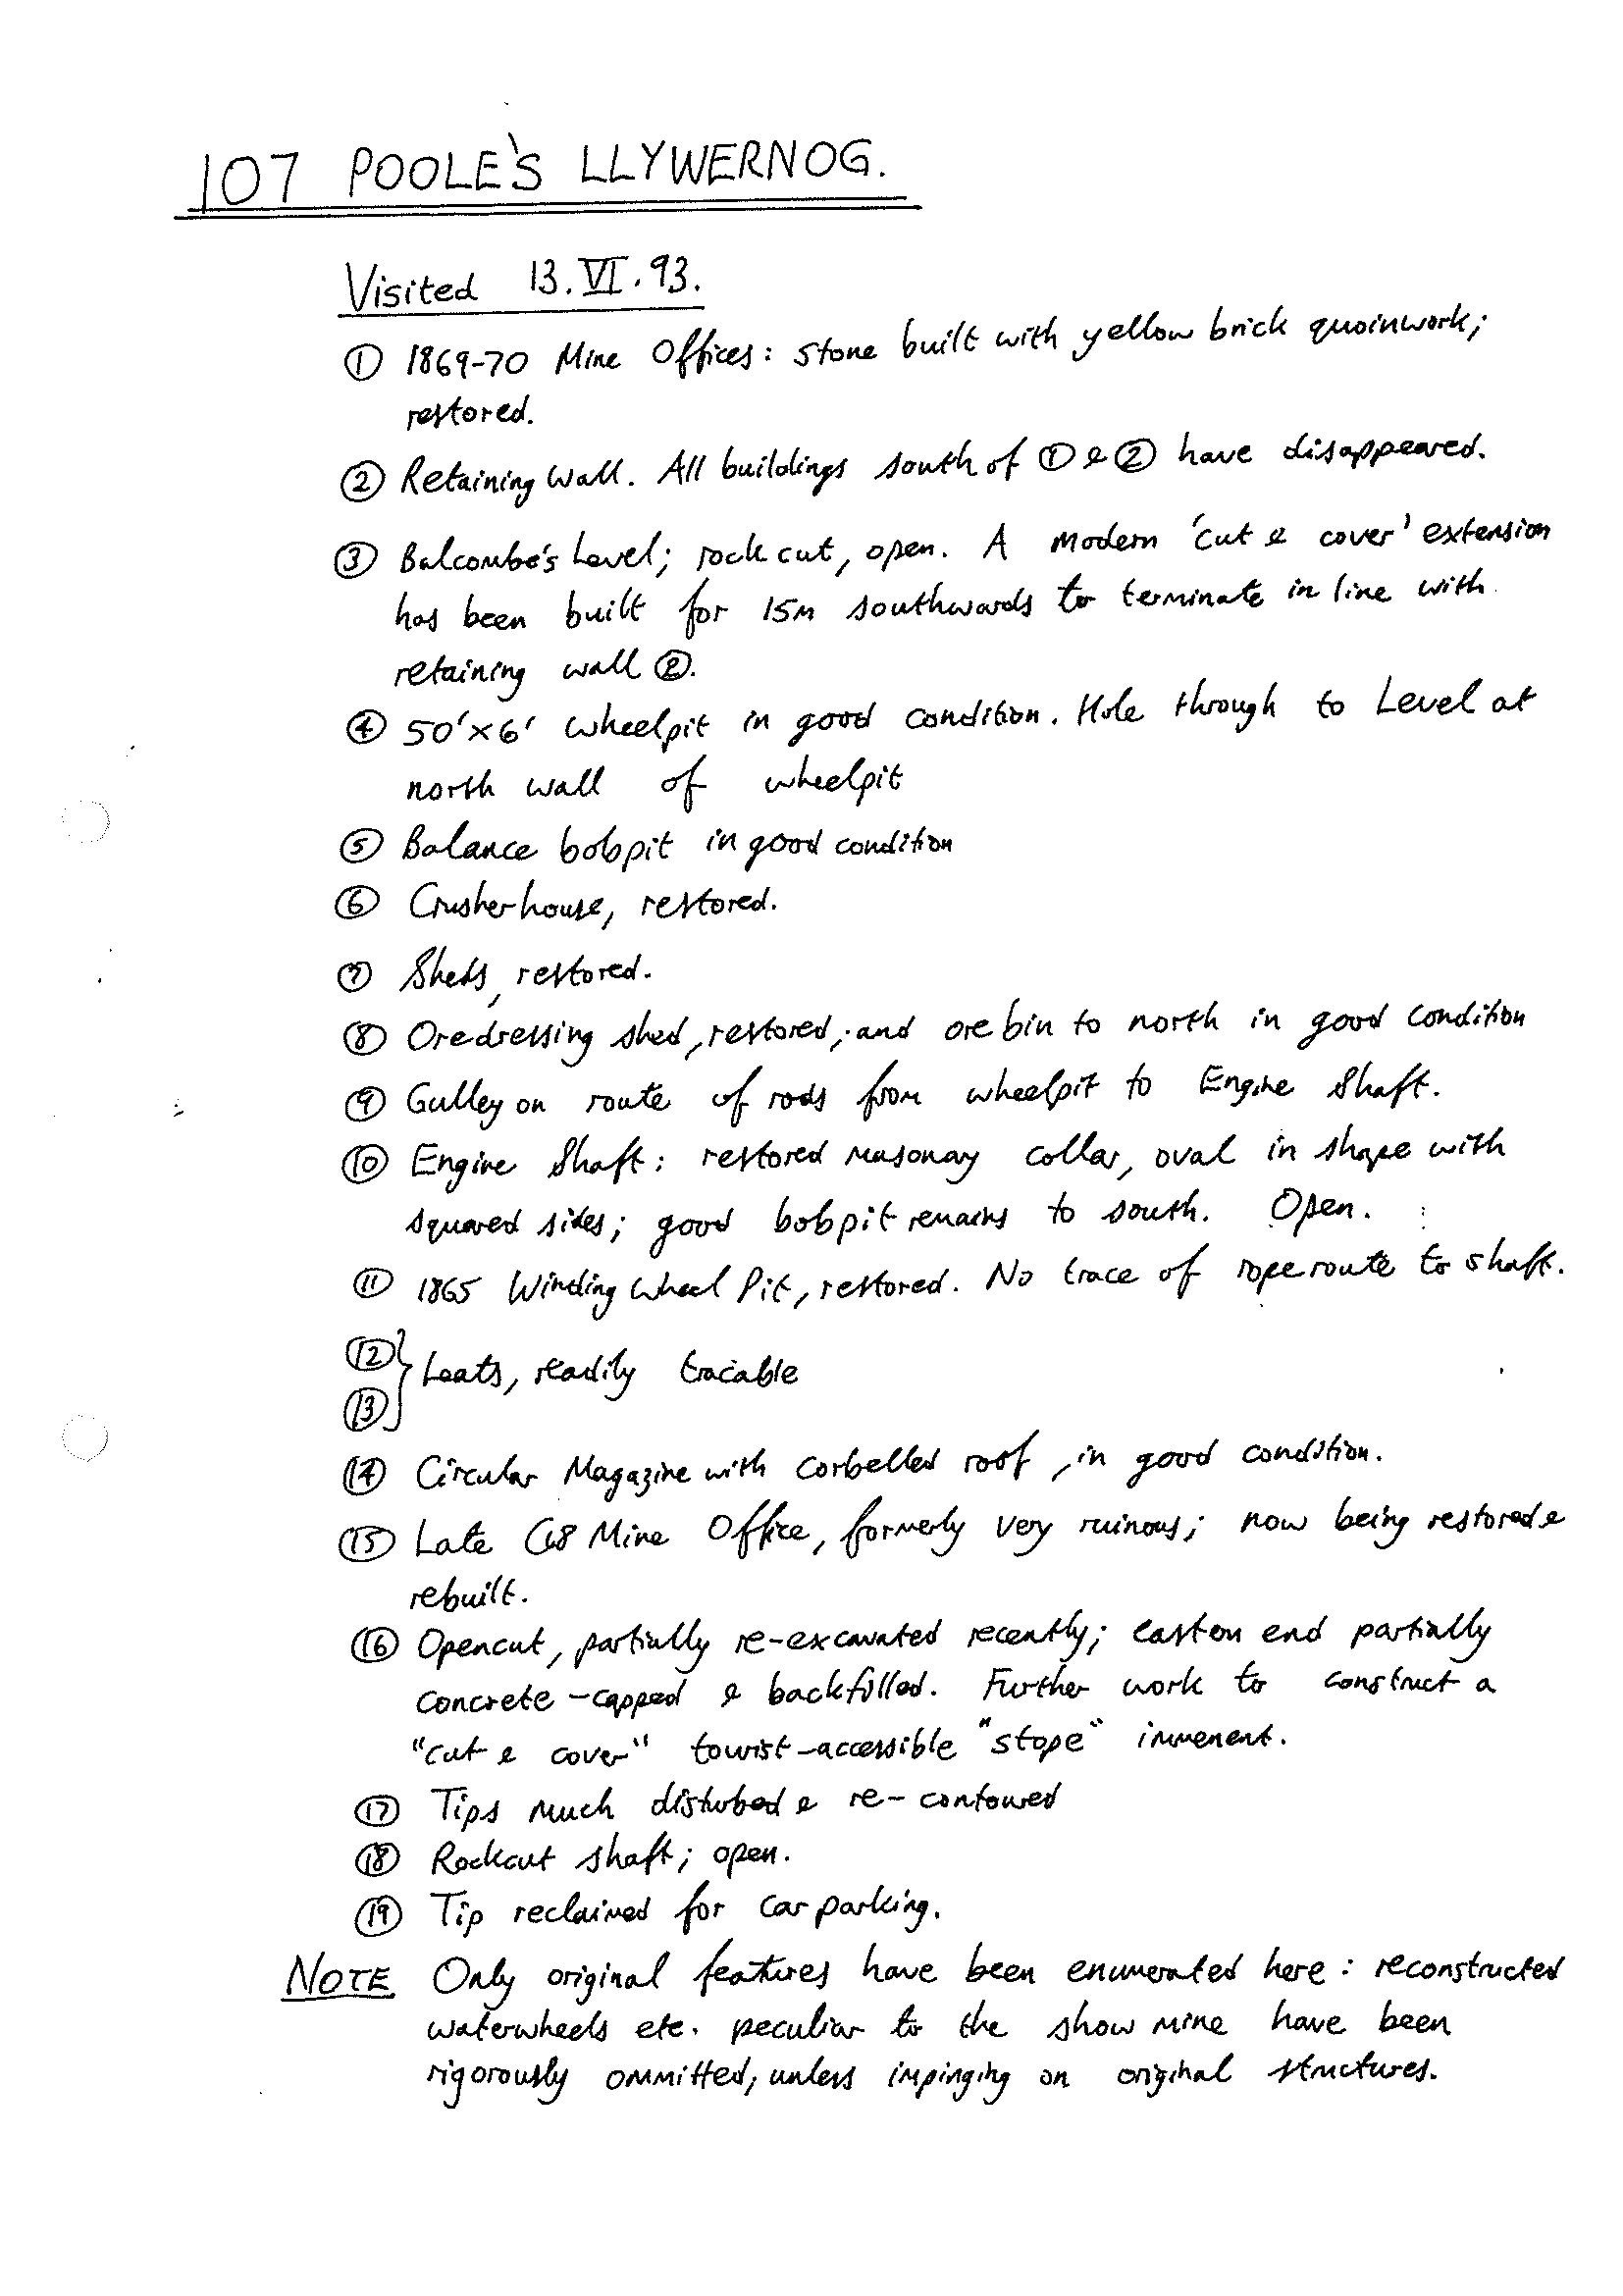 107 POOLE'S LLYWERNOG.
Visited 13.VI.93.
① 1869-70 Mine Offices: stone built with yellow brick quoinwork;
restored.
② Retaining Wall. All buildings south of ① & ② have disappeared.
③ Balcombe's Level; rock cut, open. A modern 'cut & cover' extension
has been built for 15m southwards to terminate in line with
retaining wall ②.
④ 50'×6' wheelpit in good condition. Hole through to Level at
north wall of wheelpit
⑤ Balance bobpit in good condition
⑥ Crusherhouse, restored.
⑦ Sheds, restored.
⑧ Oredressing shed, restored; and orebin to north in good condition
⑨ Gulley on route of rods from wheelpit to Engine Shaft.
⑩ Engine Shaft: restored masonay collar, oval in shape with
squared sides; good bobpit remains to south. Open.
⑪ 1865 Winding Wheel Pit, restored. No trace of roperoute to shaft.
⑫
⑬ } Leats, readily tracable
⑭ Circular Magazine with corbelled roof, in good condition.
⑮ Late C18 Mine Office, formerly very ruinous; now being restored &
rebuilt.
⑯ Opencut, partially re-excavated recently; eastern end partially
concrete-capped & backfilled. Further work to construct a
"cut & cover" tourist-accessible "stope" immenent.
⑰ Tips much disturbed & re-contoured
⑱ Rockcut shaft; open.
⑲ Tip reclaimed for car parking.
NOTE Only original features have been enumerated here: reconstructed
waterwheels etc. peculiar to the show mine have been
rigorously ommitted, unless impinging on original structures.